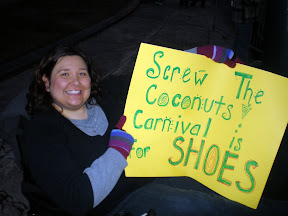 Screw The
Coconuts;
Carnival is
for SHOES